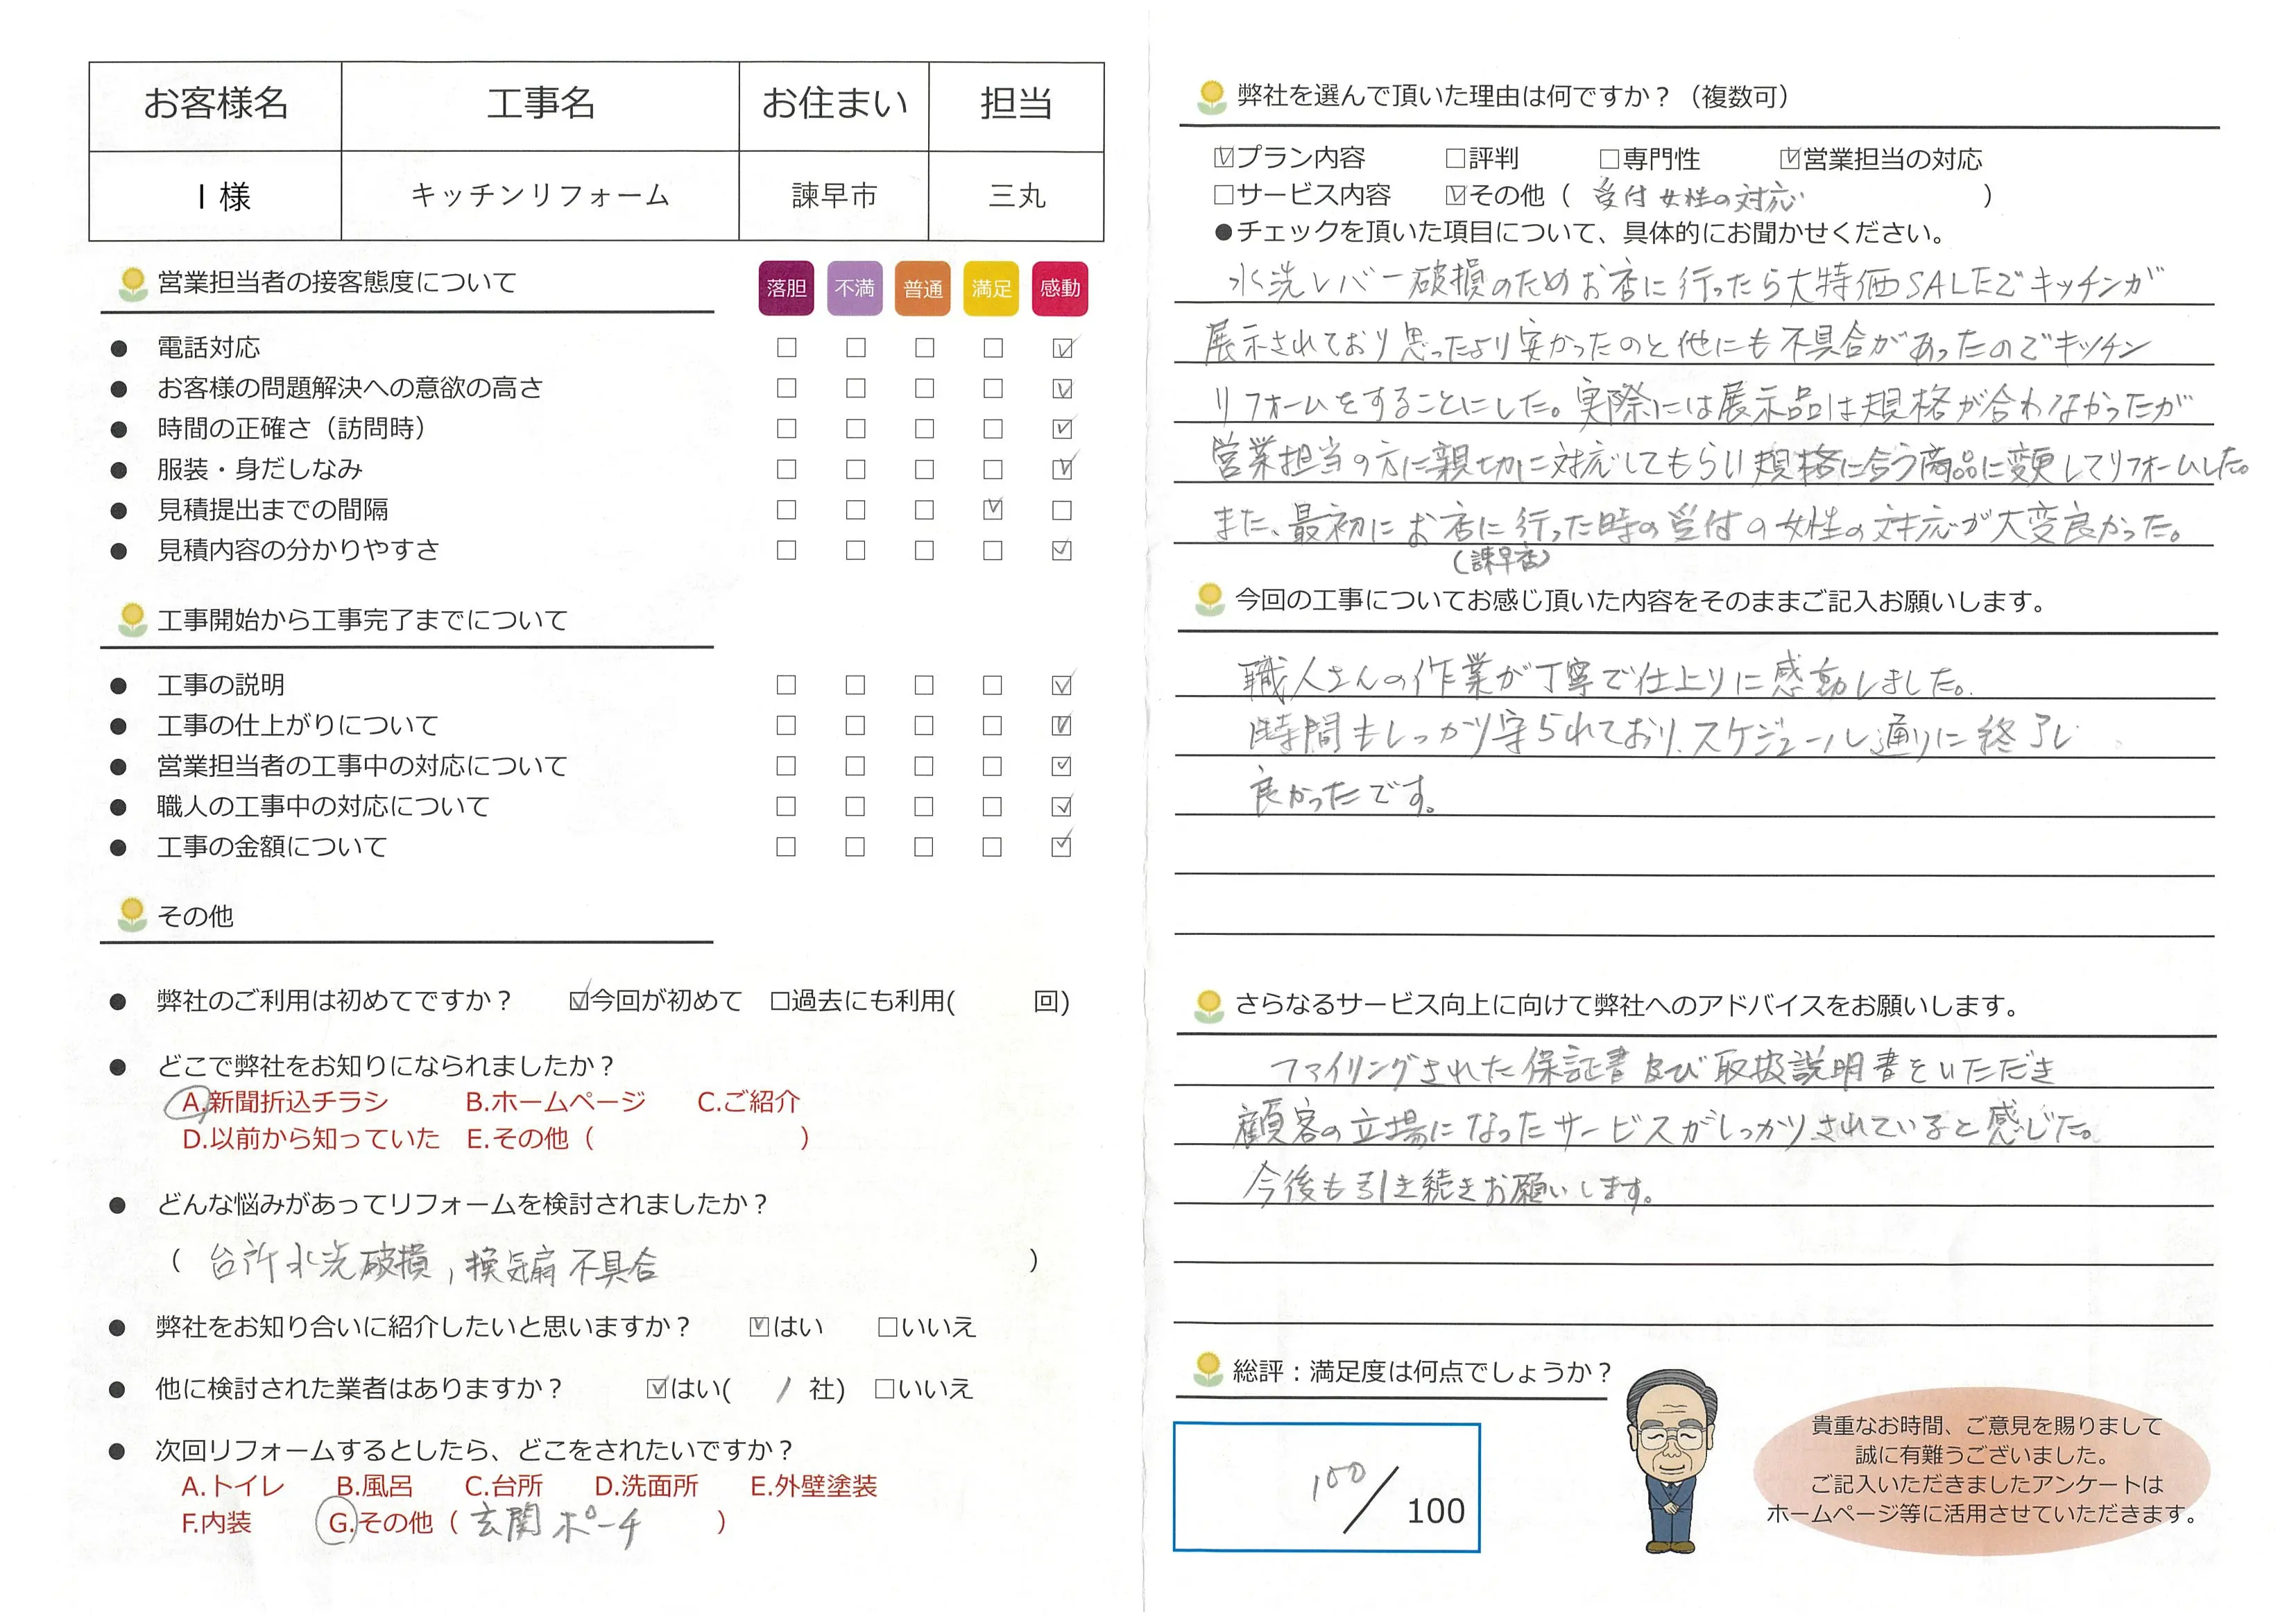 お客様名 工事名 お住まい 担当
I 様 キッチンリフォーム 諫早市 三丸
営業担当者の接客態度について 落胆 不満 普通 満足 感動
● 電話対応 □ □ □ □ ☑
● お客様の問題解決への意欲の高さ □ □ □ □ ☑
● 時間の正確さ（訪問時） □ □ □ □ ☑
● 服装・身だしなみ □ □ □ □ ☑
● 見積提出までの間隔 □ □ □ ☑ □
● 見積内容の分かりやすさ □ □ □ □ ☑
工事開始から工事完了までについて
● 工事の説明 □ □ □ □ ☑
● 工事の仕上がりについて □ □ □ □ ☑
● 営業担当者の工事中の対応について □ □ □ □ ☑
● 職人の工事中の対応について □ □ □ □ ☑
● 工事の金額について □ □ □ □ ☑
その他
● 弊社のご利用は初めてですか？ ☑今回が初めて □過去にも利用( 回)
● どこで弊社をお知りになられましたか？
A.新聞折込チラシ B.ホームページ C.ご紹介
D.以前から知っていた E.その他（ ）
● どんな悩みがあってリフォームを検討されましたか？
（ 台所水洗破損，換気扇不具合 ）
● 弊社をお知り合いに紹介したいと思いますか？ ☑はい □いいえ
● 他に検討された業者はありますか？ ☑はい( 1 社) □いいえ
● 次回リフォームするとしたら、どこをされたいですか？
A.トイレ B.風呂 C.台所 D.洗面所 E.外壁塗装
F.内装 G.その他（ 玄関ポーチ ）
弊社を選んで頂いた理由は何ですか？（複数可）
☑プラン内容 □評判 □専門性 ☑営業担当の対応
□サービス内容 ☑その他（ 受付女性の対応 ）
●チェックを頂いた項目について、具体的にお聞かせください。
水洗レバー破損のためお店に行ったら大特価SALEでキッチンが
展示されており思ったより安かったのと他にも不具合があったのでキッチン
リフォームをすることにした。実際には展示品は規格が合わなかったが
営業担当の方に親切に対応してもらい規格に合う商品に変更してリフォームした。
また、最初にお店に行った時の受付の女性の対応が大変良かった。
（諫早店）
今回の工事についてお感じ頂いた内容をそのままご記入お願いします。
職人さんの作業が丁寧で仕上りに感動しました。
時間もしっかり守られており、スケジュール通りに終了し
良かったです。
さらなるサービス向上に向けて弊社へのアドバイスをお願いします。
ファイリングされた保証書及び取扱説明書をいただき
顧客の立場になったサービスがしっかりされていると感じた。
今後も引き続きお願いします。
総評：満足度は何点でしょうか？
100／100
貴重なお時間、ご意見を賜りまして
誠に有難うございました。
ご記入いただきましたアンケートは
ホームページ等に活用させていただきます。